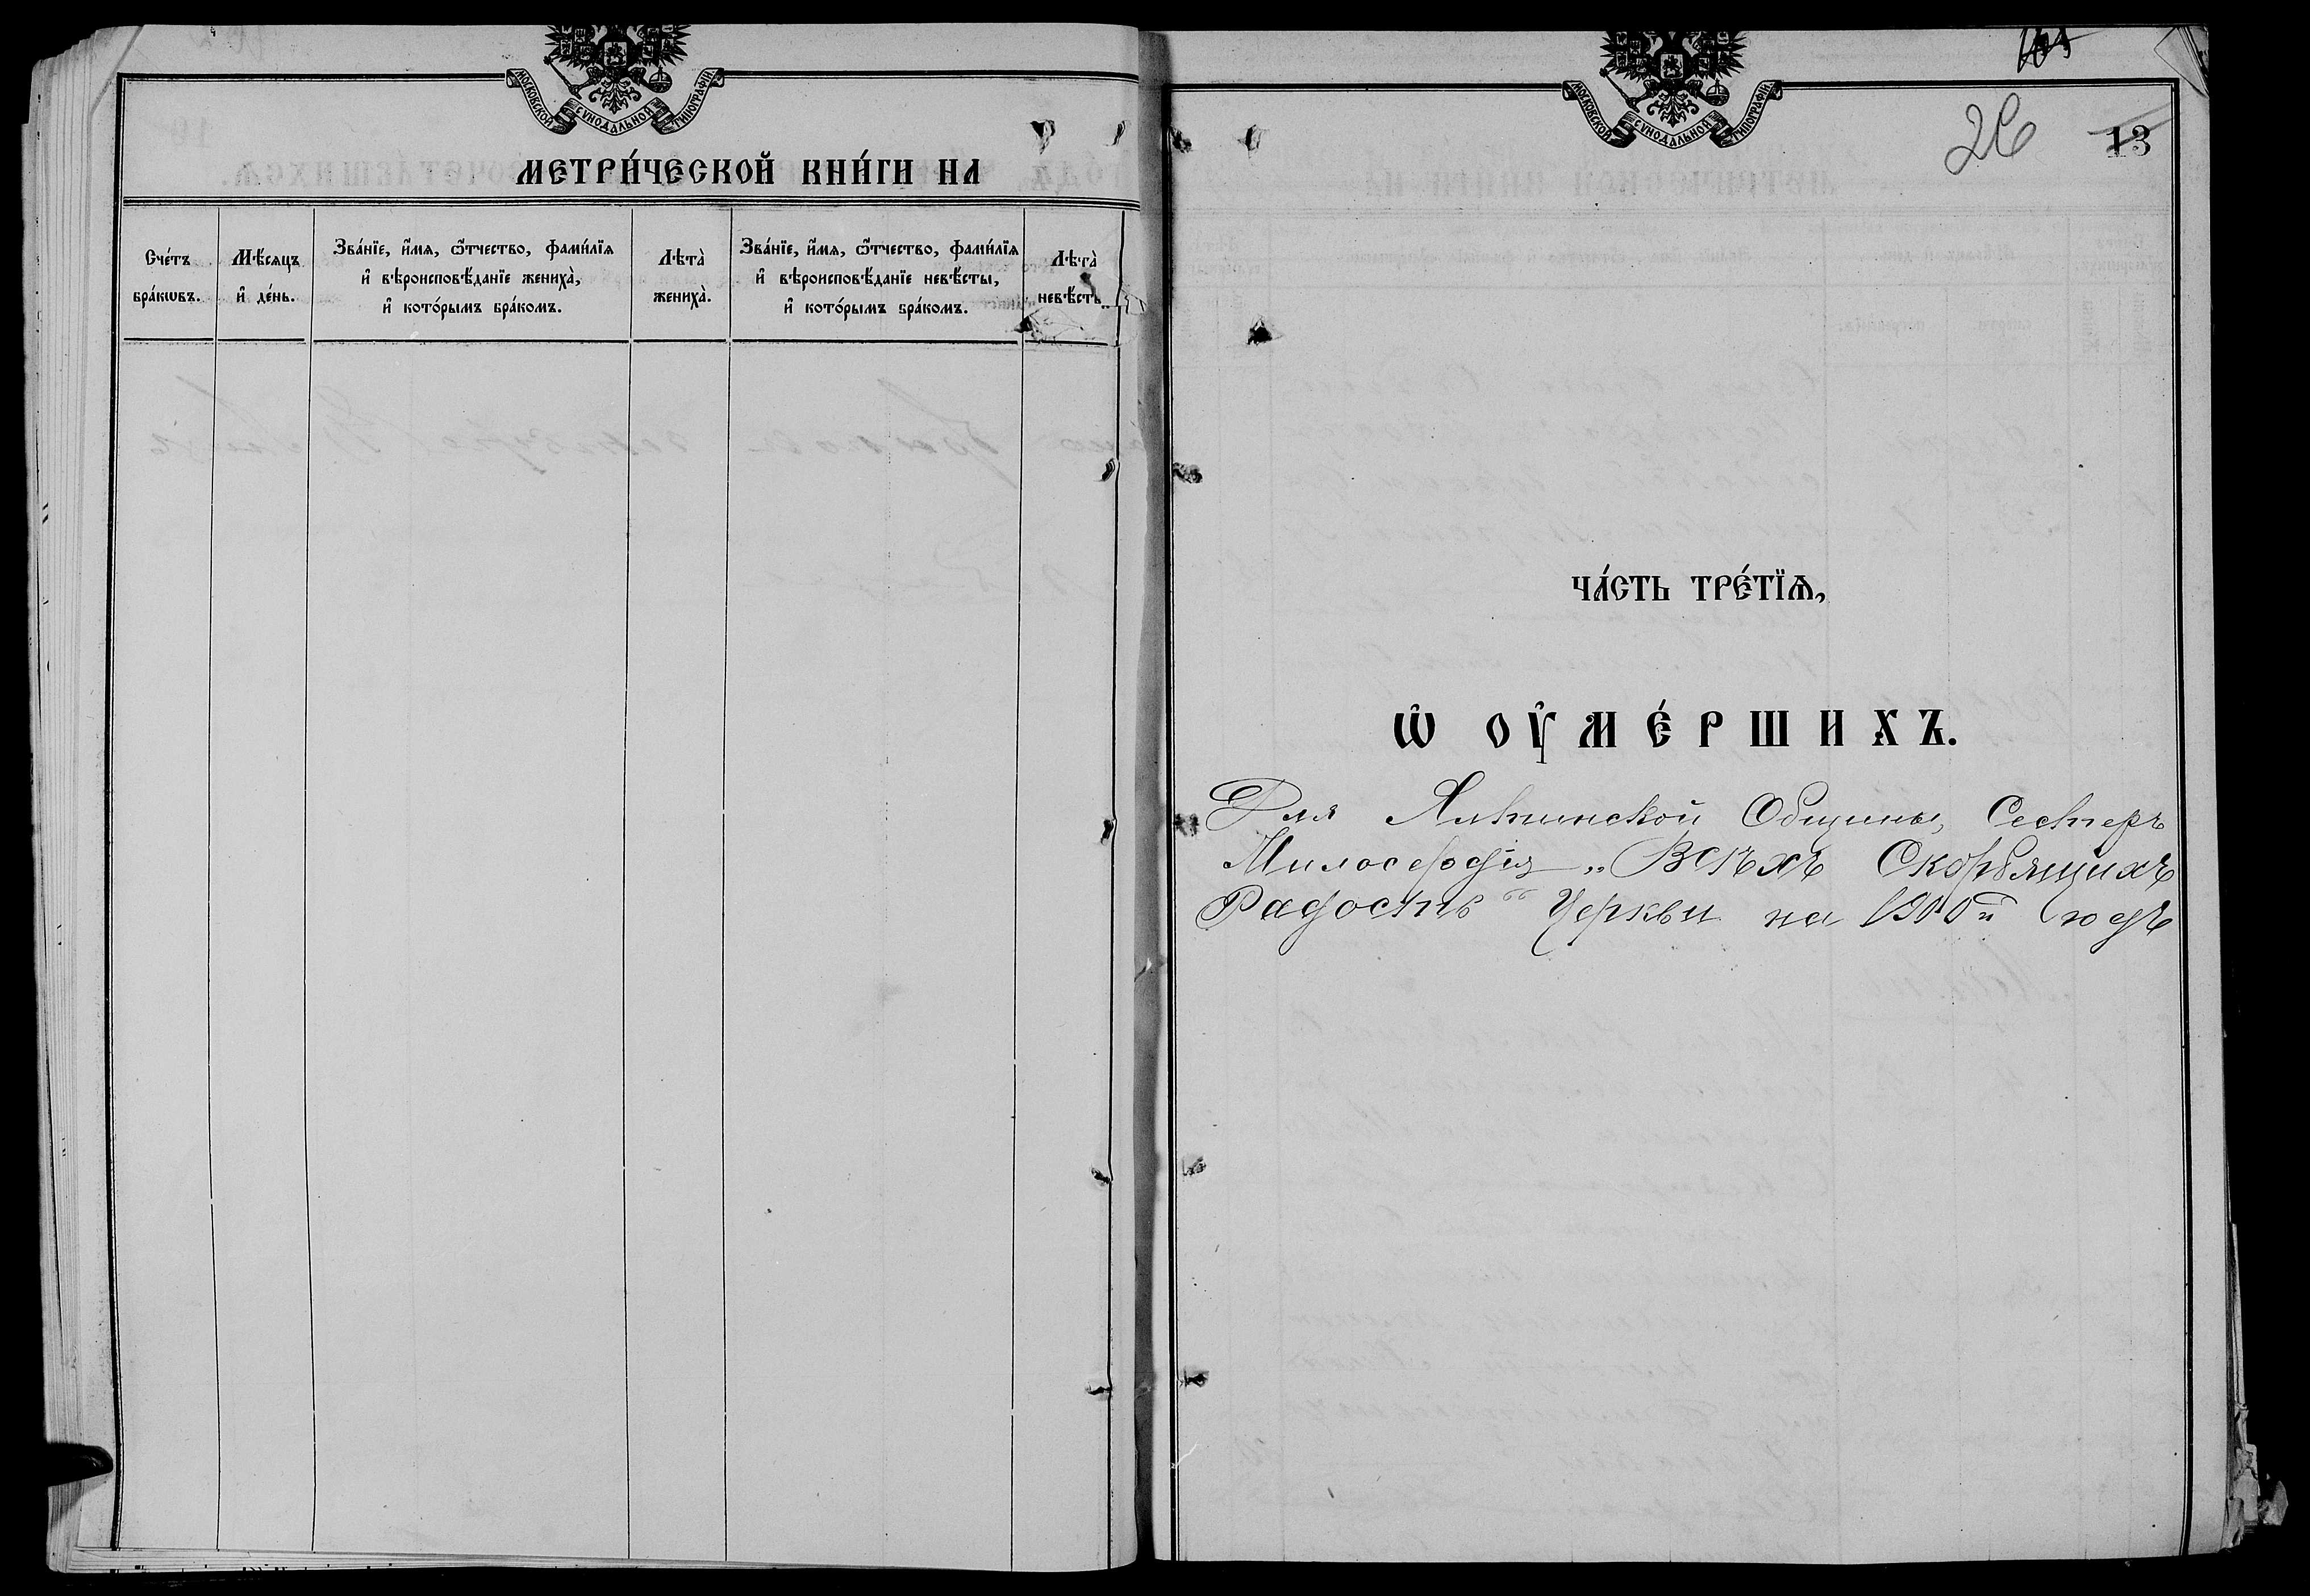 МОСКОВСКОЙ СѴНОДАЛЬНОЙ ТИПОГРАФІИ
МЕТРИ́ЧЕСКОЙ КНИ́ГИ НА
Сче́тъ бра́кѡвъ.
Мѣ́сяцъ и҆ де́нь.
Зва́нїе, и҆́мя, ѻ҆́тчество, фами́лїя
и҆ вѣроисповѣ́данїе жениха̀,
и҆ кото́рымъ бра́комъ.
Лѣта̀ жениха̀.
Зва́нїе, и҆́мя, ѻ҆́тчество, фами́лїя
и҆ вѣроисповѣ́данїе невѣ́сты,
и҆ кото́рымъ бра́комъ.
Лѣта̀ невѣ́сты.
МОСКОВСКОЙ СѴНОДАЛЬНОЙ ТИПОГРАФІИ
26 13
ЧА́СТЬ ТРЕ́ТЇѦ,
Ѡ҆ ОУ҆МЕ́РШИХЪ.
Для Ялтинской Общины Сестеръ
Милосердія „Всѣхъ Скорбящихъ
Радость" Церкви на 1900й годъ